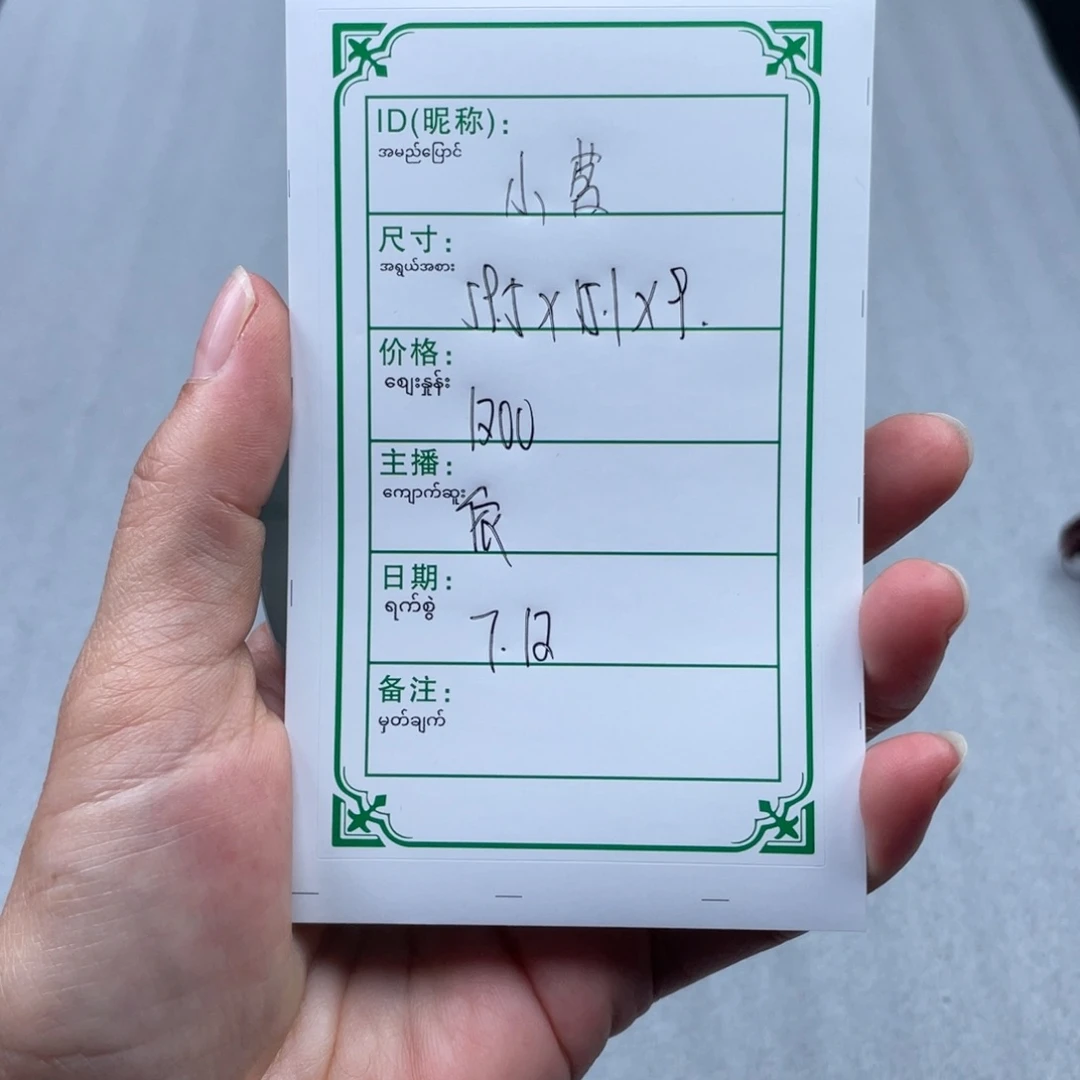 ID(昵称):
အမည်ပြောင်
小
尺寸:
အရွယ်အစား
59.5 x 15.1 x 9.
价格:
ဈေးနှုန်း
1200
主播:
ကျောက်ဆူး
宸
日期:
ရက်စွဲ
7.12
备注:
မှတ်ချက်